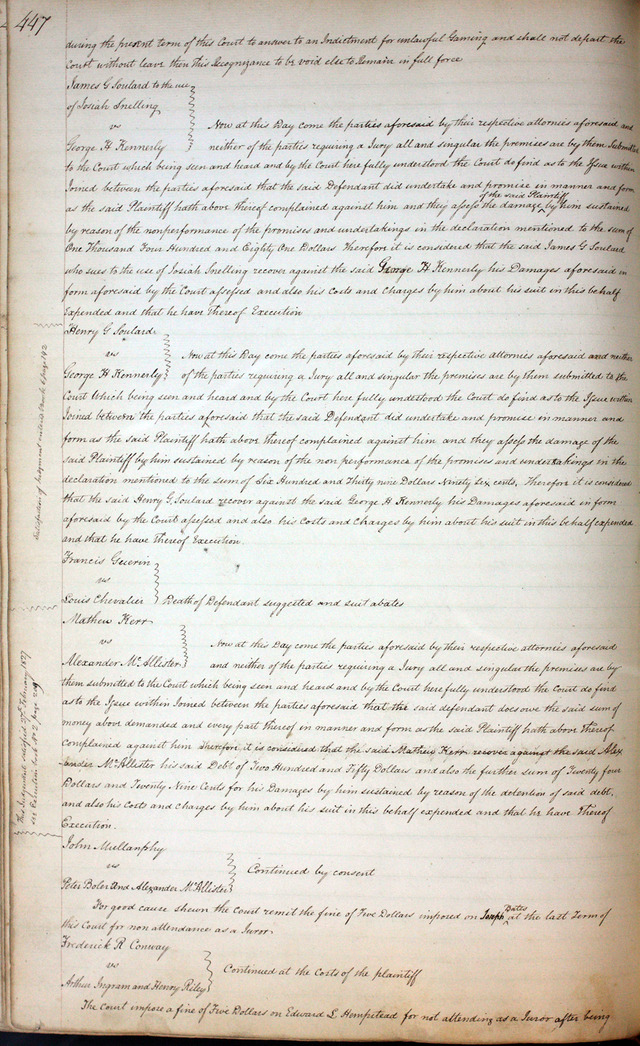 447
during the present term of this Court to answer to an Indictment for unlawful Gaming and shall not depart the
Court without leave then this Recognizance to be void else to Remain in full force
James G Soulard to the use
of Josiah Snelling
vs
George H Kennerly
Now at this Day come the parties aforesaid by their respective attornies aforesaid and
neither of the parties requiring a Jury all and singular the premises are by them Submitted
to the Court which being seen and heard and by the Court here fully understood the Court do find as to the Issue within
Joined between the parties aforesaid that the said Defendant did undertake and promise in manner and form
of the said Plaintiff
as the said Plaintiff hath above thereof complained against him and they assess the damage ^ by him sustained
by reason of the nonperformance of the promises and undertakings in the declaration mentioned to the sum of
One Thousand Four Hundred and Eighty One Dollars Therefore it is considered that the said James G Soulard
who sues to the use of Josiah Snelling recover against the said George H Kennerly his Damages aforesaid in
form aforesaid by the Court assessed and also his Costs and Charges by him about his suit in this behalf
Expended and that he have Thereof Execution
Henry G Soulard
vs
George H Kennerly
Now at this Day come the parties aforesaid by their respective attornies aforesaid and neither
of the parties requiring a Jury all and singular the premises are by them submitted to the
Court Which being seen and heard and by the Court here fully understood the Court do find as to the Issue within
Joined between the parties aforesaid that the said Defendant did undertake and promise in manner and
form as the said Plaintiff hath above thereof complained against him and they assess the damage of the
said Plaintiff by him sustained by reason of the non performance of the promises and undertakings in the
declaration mentioned to the sum of Six Hundred and Thirty nine Dollars Ninety six cents, Therefore it is considered
that the said Henry G, Soulard recover against the said George H Kennerly his Damages aforesaid in form
aforesaid by the Court assessed and also his Costs and Charges by him about his suit in this behalf expended
and that he have Thereof Execution.
Satisfaction of Judgment entered Book 6 page 142
Francis Guerin
vs
Louis Chevalier
Death of Defendant suggested and suit abates
Mathew Kerr
vs
Alexander McAllister
Now at this Day come the parties aforesaid by their respective attornies aforesaid
and neither of the parties requiring a Jury all and singular the premises are by
them submitted to the Court which being seen and heard and by the Court here fully understood the Court do find
as to the Issue within Joined between the parties aforesaid that the said defendant does owe the said sum of
money above demanded and every part thereof in manner and form as the said Plaintiff hath above thereof
complained against him therefore it is considered that the said Mathew Kerr recover against the said Alex
ander McAllister his said Debt of Two Hundred and Fifty Dollars and also the further sum of Twenty four
Dollars and Twenty Nine Cents for his Damages by him sustained by reason of the detention of said debt,
and also his Costs and charges by him about his suit in this behalf expended and that he have Thereof
Execution.
This Judgment satisfied 27th February 1827
see Execution book No 2 page
John Mullanphy
vs
Peter Boler And Alexander McAllister
Continued by consent
Bates
For good cause shewn the Court remit the fine of Five Dollars imposed on Joseph ^ at the last Term of
this Court for non attendance as a Juror.
Frederick R Conway
vs
Arthur Ingram and Henry Riley
Continued at the costs of the plaintiff
The Court impose a fine of Five Dollars on Edward L Hempstead for not attending as a Juror after being